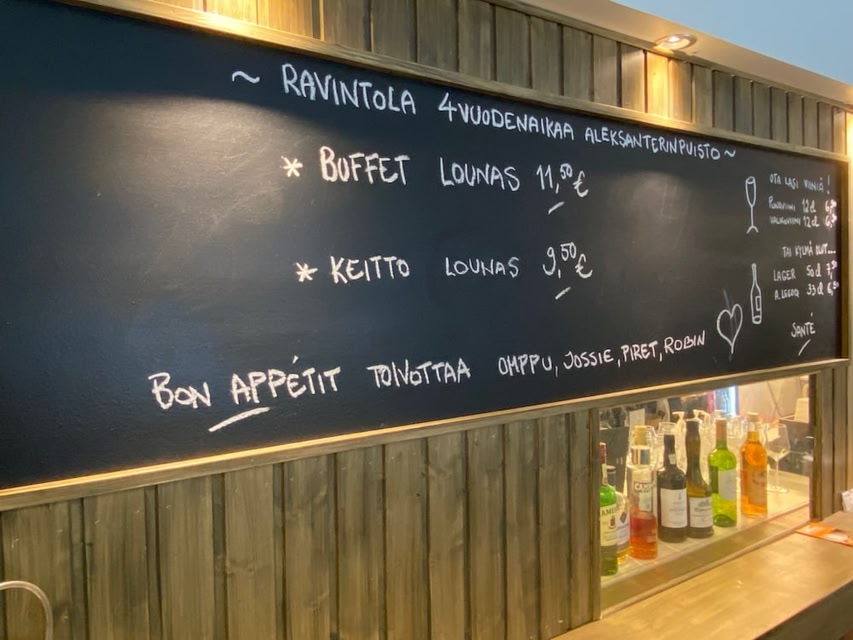 ~ RAVINTOLA 4VUODENAIKAA ALEKSANTERINPUISTO ~
* BUFFET LOUNAS 11,50 €
* KEITTO LOUNAS 9,50 €
BON APPÉTIT TOIVOTTAA OMPPU, JOSSIE, PIRET, ROBIN
OTA LASI VIINIÄ!
PUNAVIINI 12cl
VALKOVIINI 12cl
TAI KYLMÄ OLUT...
LAGER
33 cl
SANTÉ